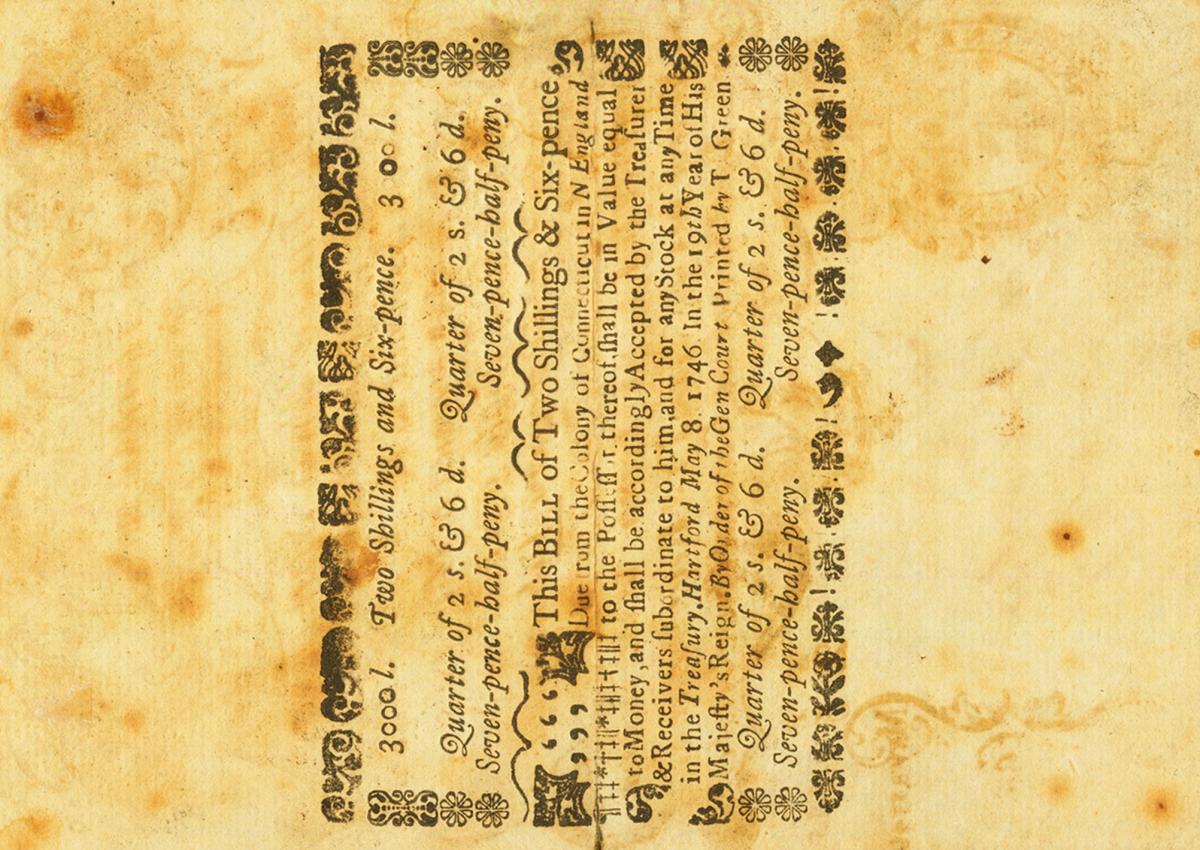 3000 l. Two Shillings and Six-pence. 3 00 l.
Quarter of 2 s. & 6 d. Quarter of 2 s. & 6 d.
Seven-pence-half-peny. Seven-pence-half-peny.
This BILL of Two Shillings & Six-pence
Due from the Colony of Connecticut in N England
to the Poſſeſſor thereof, ſhall be in Value equal
to Money, and ſhall be accordingly Accepted by the Treaſurer
& Receivers ſubordinate to him, and for any Stock at any Time
in the Treaſury. Hartford May 8. 1746. In the 19th Year of His
Majeſty's Reign. By Order of the Gen Court Printed by T Green
Quarter of 2 s. & 6 d. Quarter of 2 s. & 6 d.
Seven-pence-half-peny. Seven-pence-half-peny.